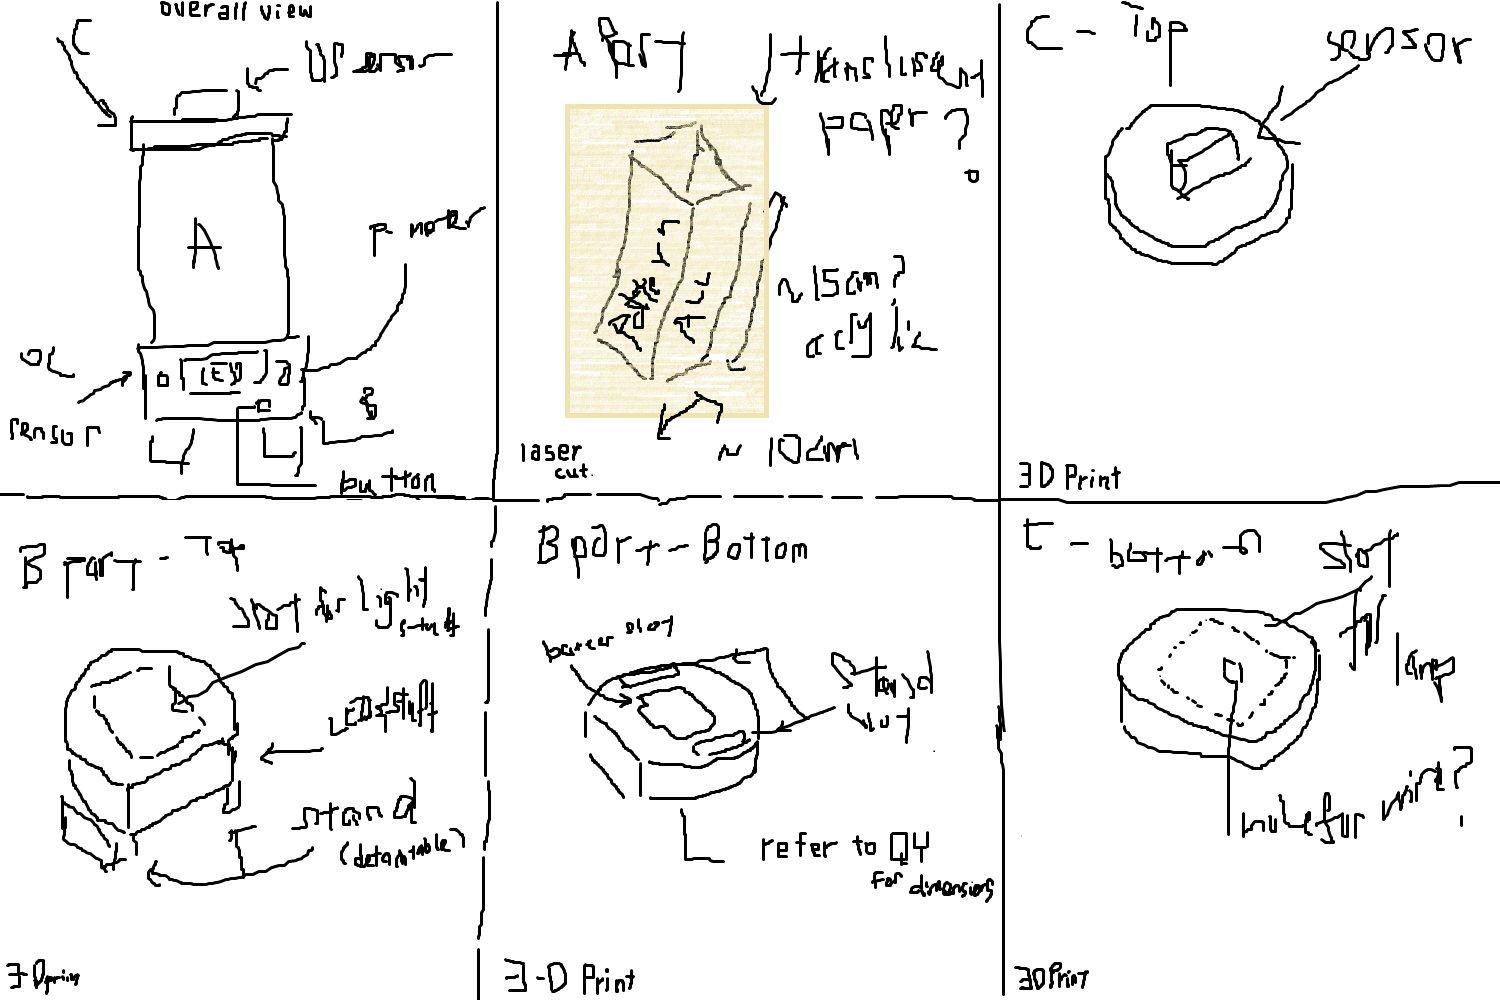 overall view
C
US sensor
A
P. moter
OL
sensor
LED
B
button
A Part
translusent
paper ?
Pattern
ALL
~ 15cm?
acrylic
~ 10cm
laser
cut.
C - Top
sensor
3D Print
B part - Top
slot for light
stuff
LED stuff
stand
3-D print
B part - Bottom
slot
Stand
slot
refer to Q4
For dimensions
3-D Print
C - bottom
slot
for
lamp
hole for wire?
3D Print